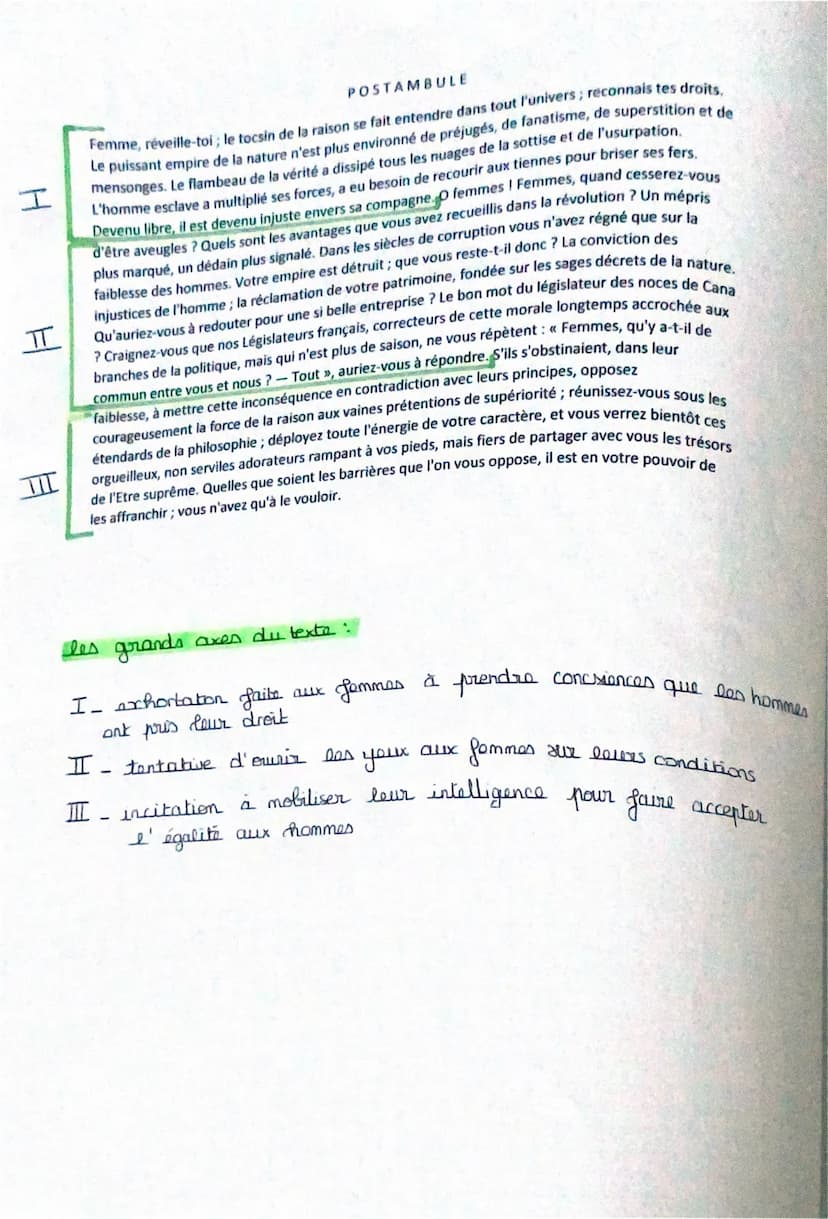 POSTAMBULE
Femme, réveille-toi ; le tocsin de la raison se fait entendre dans tout l'univers ; reconnais tes droits.
Le puissant empire de la nature n'est plus environné de préjugés, de fanatisme, de superstition et de
mensonges. Le flambeau de la vérité a dissipé tous les nuages de la sottise et de l'usurpation.
I
L'homme esclave a multiplié ses forces, a eu besoin de recourir aux tiennes pour briser ses fers.
Devenu libre, il est devenu injuste envers sa compagne. O femmes ! Femmes, quand cesserez-vous
d'être aveugles ? Quels sont les avantages que vous avez recueillis dans la révolution ? Un mépris
plus marqué, un dédain plus signalé. Dans les siècles de corruption vous n'avez régné que sur la
faiblesse des hommes. Votre empire est détruit ; que vous reste-t-il donc ? La conviction des
injustices de l'homme ; la réclamation de votre patrimoine, fondée sur les sages décrets de la nature.
II
Qu'auriez-vous à redouter pour une si belle entreprise ? Le bon mot du législateur des noces de Cana
? Craignez-vous que nos Législateurs français, correcteurs de cette morale longtemps accrochée aux
branches de la politique, mais qui n'est plus de saison, ne vous répètent : « Femmes, qu'y a-t-il de
commun entre vous et nous ? — Tout », auriez-vous à répondre. S'ils s'obstinaient, dans leur
faiblesse, à mettre cette inconséquence en contradiction avec leurs principes, opposez
courageusement la force de la raison aux vaines prétentions de supériorité ; réunissez-vous sous les
étendards de la philosophie ; déployez toute l'énergie de votre caractère, et vous verrez bientôt ces
III
orgueilleux, non serviles adorateurs rampant à vos pieds, mais fiers de partager avec vous les trésors
de l'Etre suprême. Quelles que soient les barrières que l'on vous oppose, il est en votre pouvoir de
les affranchir ; vous n'avez qu'à le vouloir.
les grands axes du texte :
I - exhortaton faite aux femmes à prendre concsiences que les hommes
ont pris leur droit
II - tentative d'ouvrir les yeux aux femmes sur leurs conditions
III - incitation à mobiliser leur intelligence pour faire accepter
l'égalité aux hommes